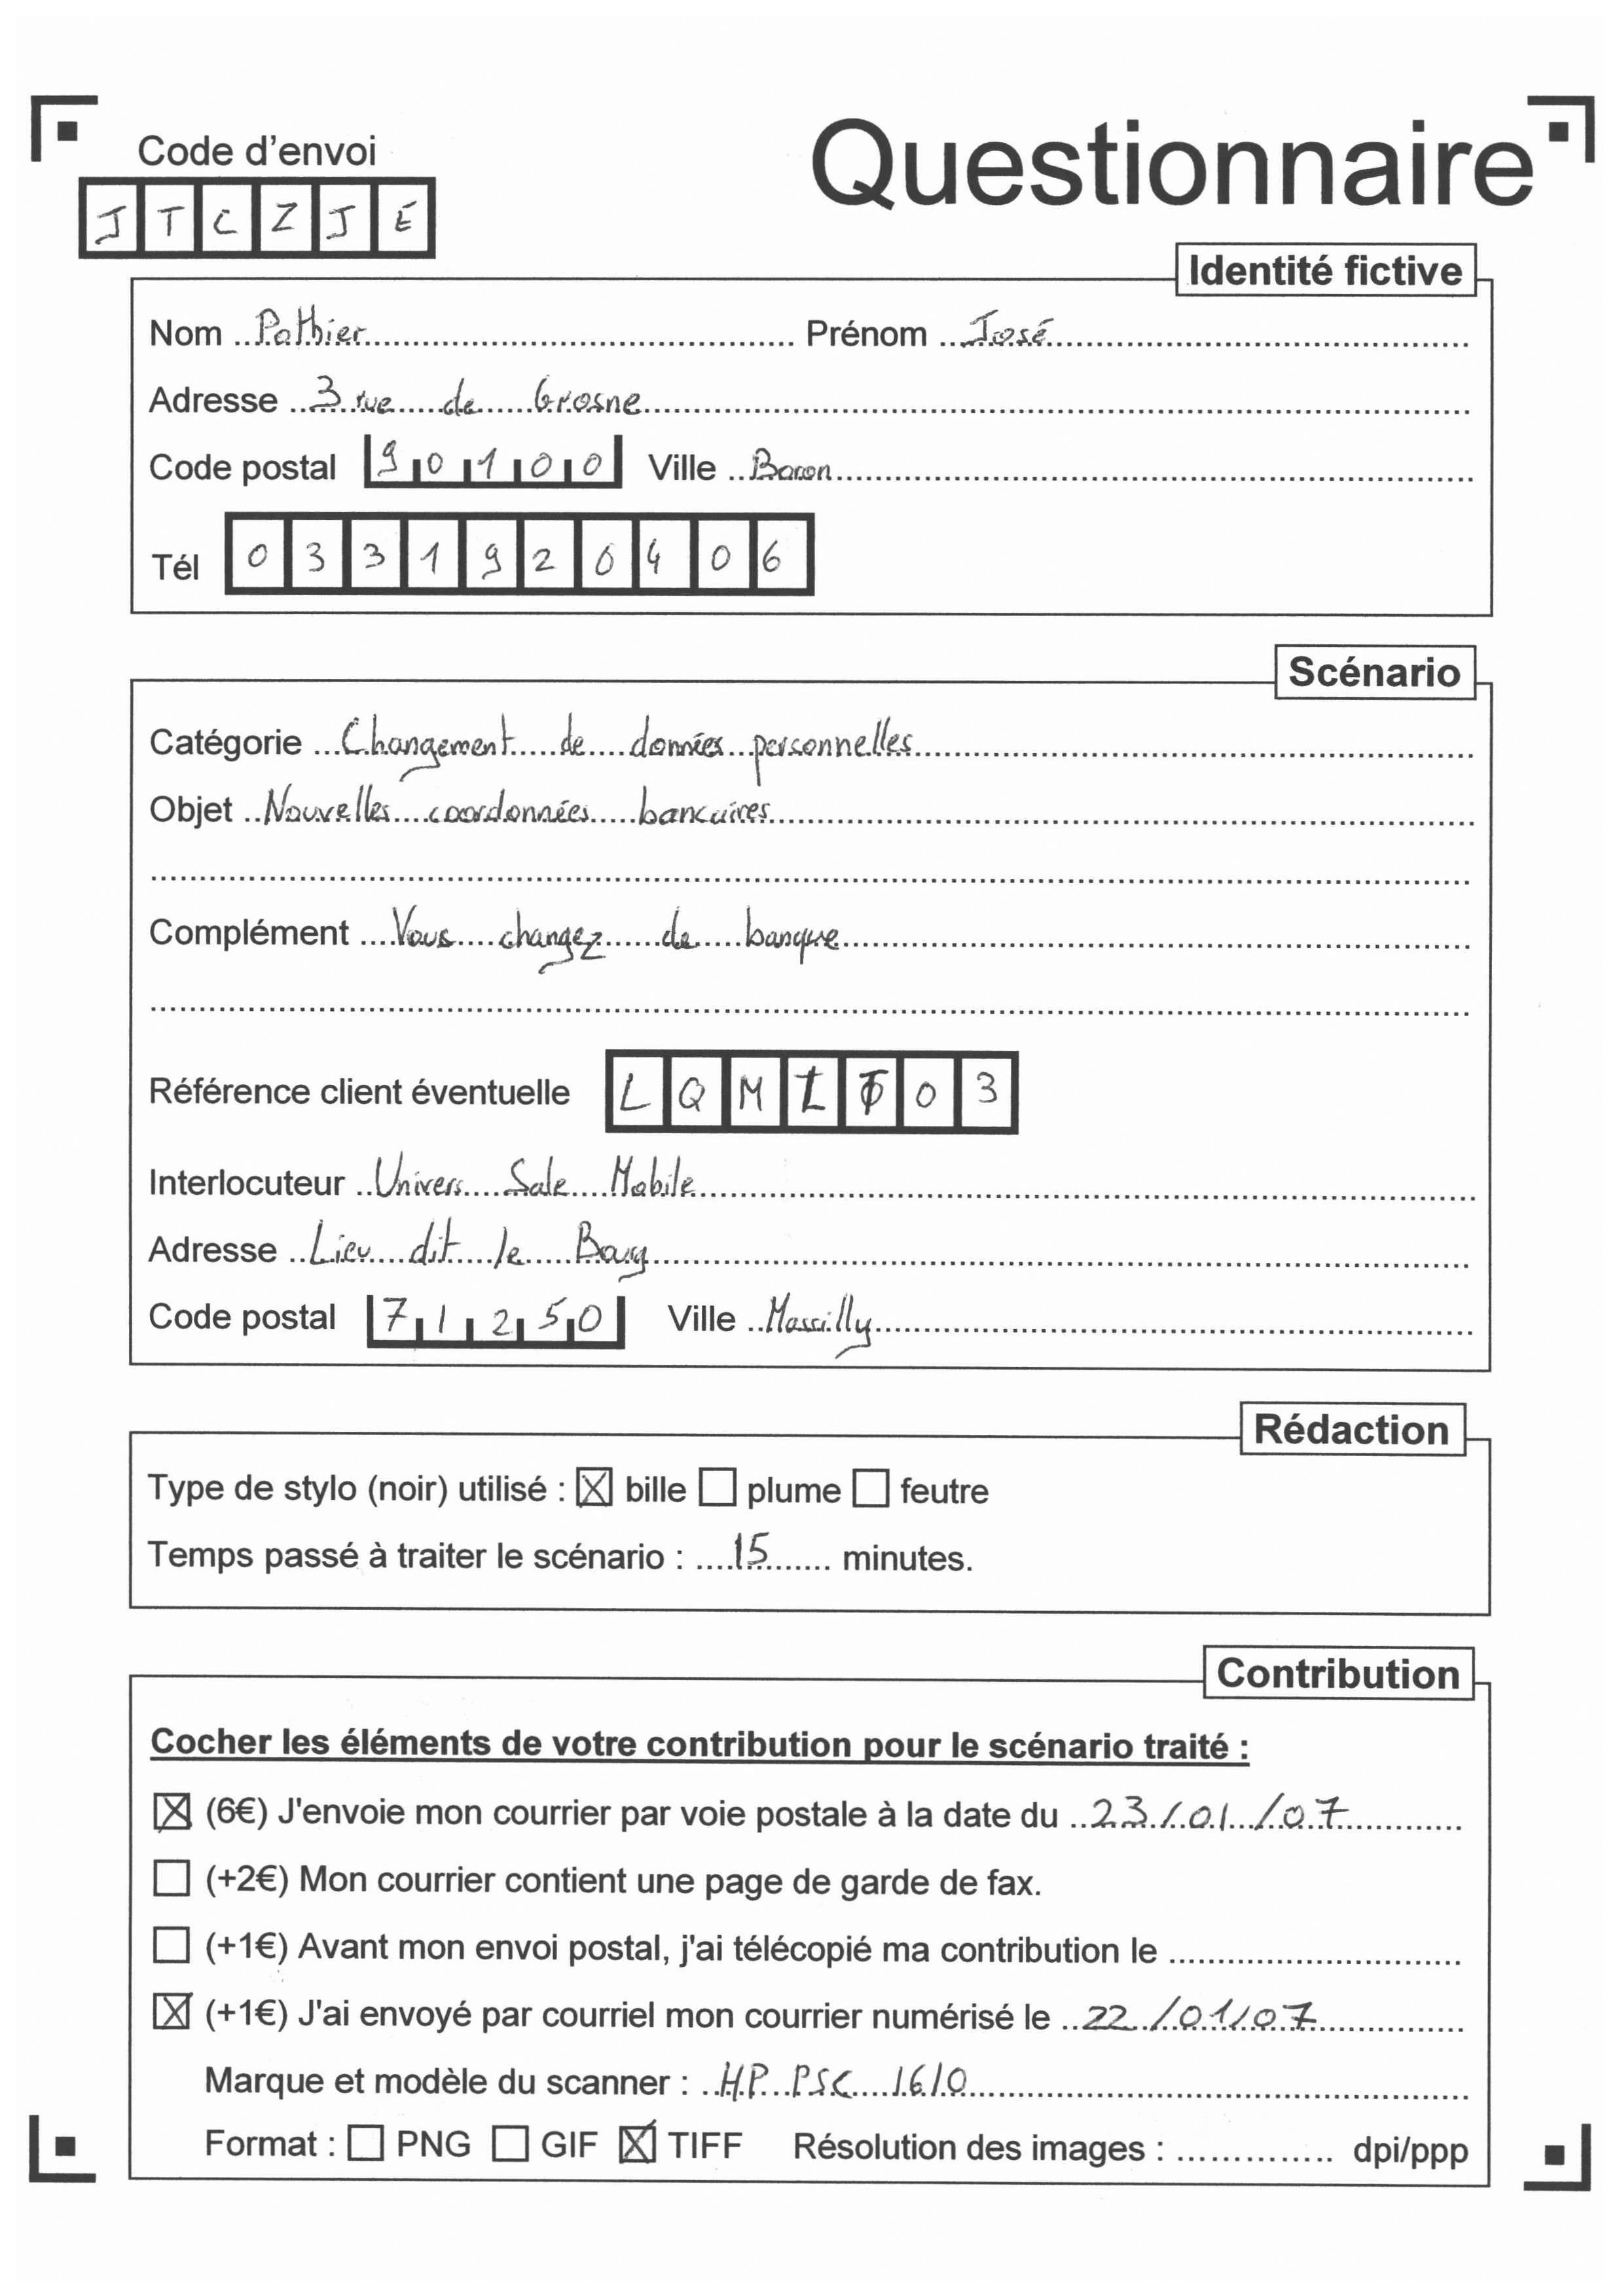 Code d'envoi
Questionnaire
J T C Z J E
Identité fictive
Nom Pothier Prénom José
Adresse 3 rue de Grosne
Code postal 90100 Ville Boron
Tél 0331926406
Scénario
Catégorie Changement de données personnelles
Objet Nouvelles coordonnées bancaires
Complément Vous changez de banque
Référence client éventuelle L Q M 0 3
Interlocuteur Univers Sale Mobile
Adresse Lieu dit le Bourg
Code postal 71250 Ville Massilly
Rédaction
Type de stylo (noir) utilisé : ☒ bille ☐ plume ☐ feutre
Temps passé à traiter le scénario : 15 minutes.
Contribution
Cocher les éléments de votre contribution pour le scénario traité :
☒ (6€) J'envoie mon courrier par voie postale à la date du 23/01/07
☐ (+2€) Mon courrier contient une page de garde de fax.
☐ (+1€) Avant mon envoi postal, j'ai télécopié ma contribution le
☒ (+1€) J'ai envoyé par courriel mon courrier numérisé le 22/01/07
Marque et modèle du scanner : HP PSC 1610
Format : ☐ PNG ☐ GIF ☒ TIFF Résolution des images : dpi/ppp